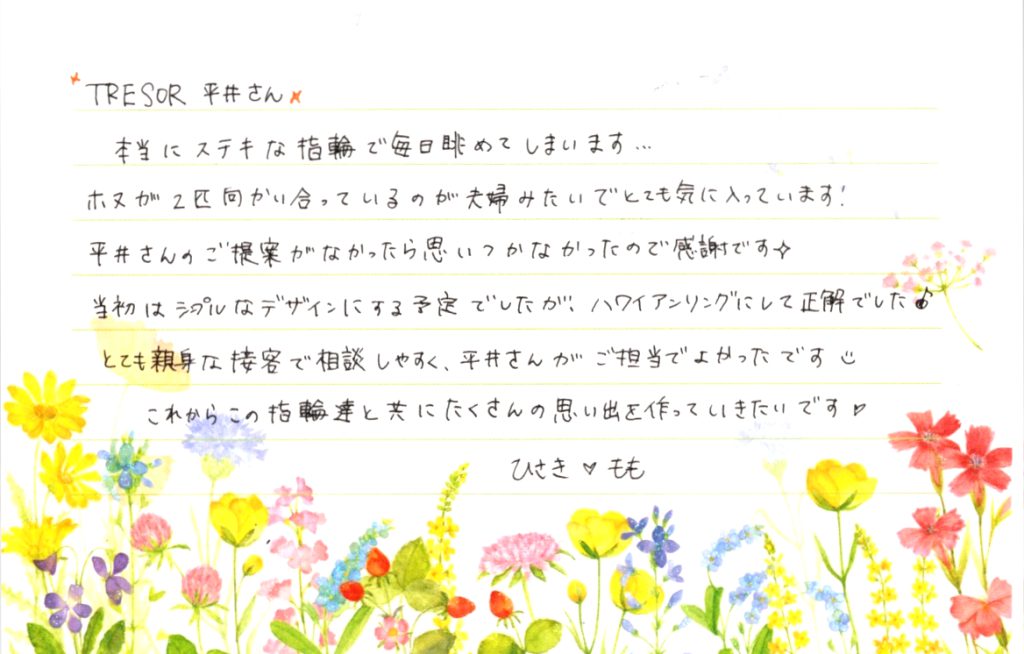 TRESOR 平井さん
本当にステキな指輪で毎日眺めてしまいます…
ホヌが2匹向かい合っているのが夫婦みたいでとても気に入っています!
平井さんのご提案がなかったら思いつかなかったので感謝です☆
当初はシンプルなデザインにする予定でしたが、ハワイアンリングにして正解でした♪
とても親身な接客で相談しやすく、平井さんがご担当でよかったです☺
これからこの指輪達と共にたくさんの思い出を作っていきたいです♡
ひさき♡もも